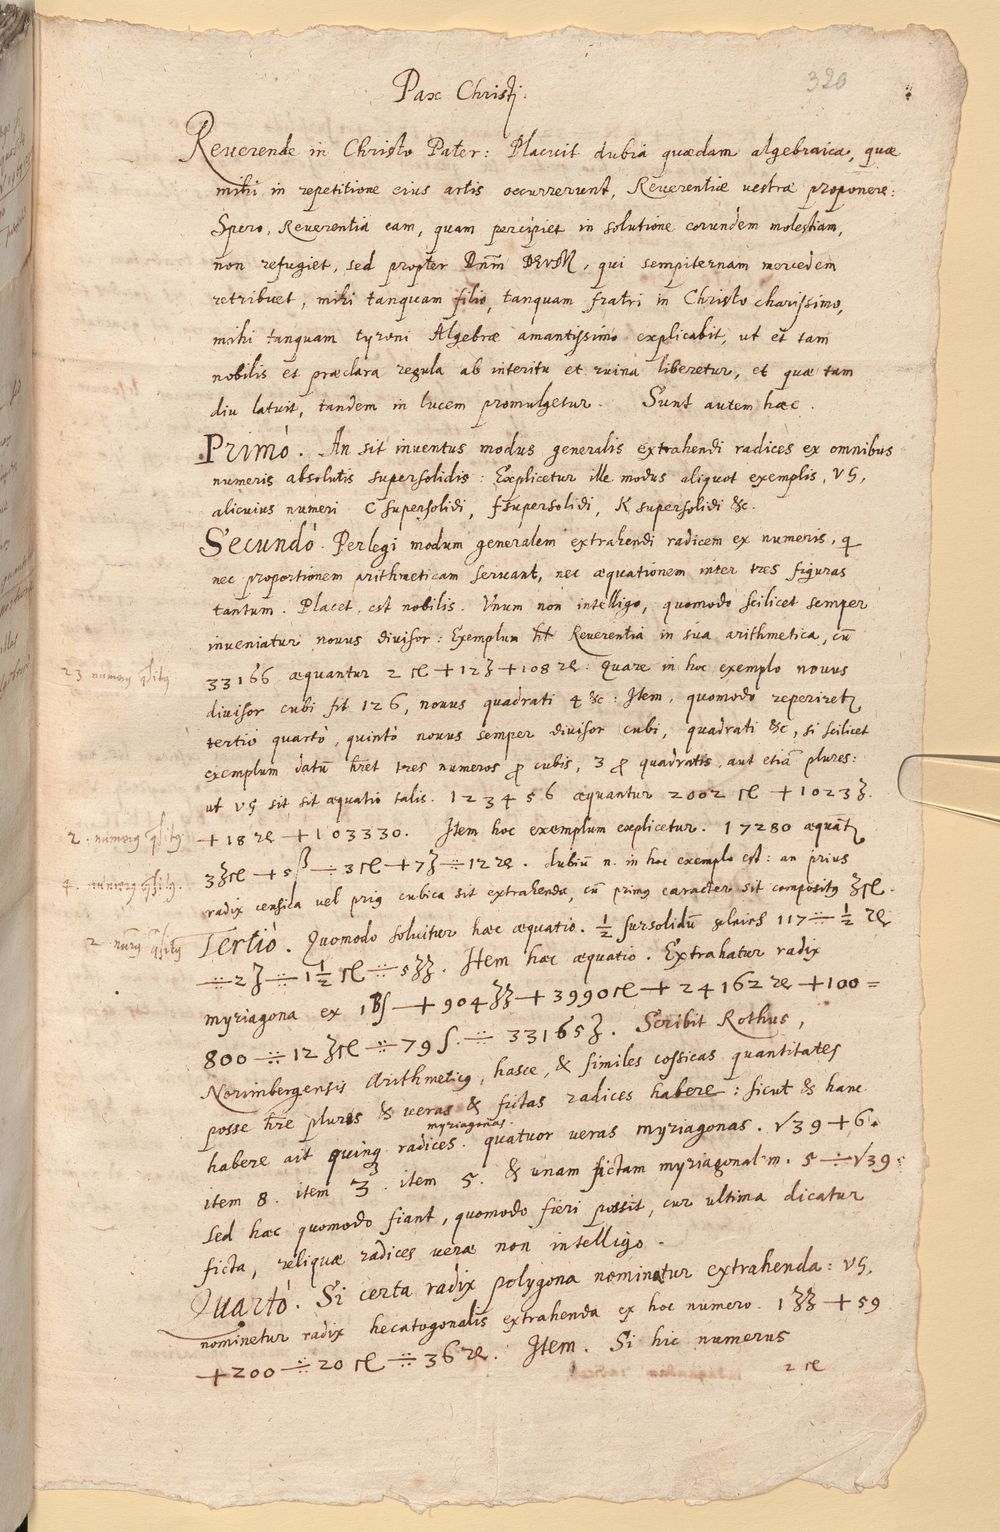 320
Pax Christi.
Reuerende in Christo Pater: Placuit dubia quædam algebraica, quæ
mihi in repetitione eius artis occurrerunt, Reuerentiæ uestræ proponere:
Spero, Reuerentia eam, quam percipiet in solutione eorundem molestiam,
non refugiet, sed propter Dnm̄ DEVM, qui sempiternam mercedem
retribuet, mihi tanquam filio, tanquam fratri in Christo charissimo,
mihi tanquam tyroni Algebræ amantissimo explicabit, ut et tam
nobilis et præclara regula ab interitu et ruina liberetur, et quæ tam
diu latuit, tandem in lucem promulgetur. Sunt autem hæc.
Primò. An sit inuentus modus generalis extrahendi radices ex omnibus
numeris absolutis supersolidis: Explicetur ille modus aliquot exemplis, VG,
alicuius numeri C supersolidi, f supersolidi, K supersolidi &c.
Secundò. Perlegi modum generalem extrahendi radicem ex numeris, q
nec proportionem arithmeticam seruant, nec æquationem inter tres figuras
tantum. Placet, est nobilis. Vnum non intelligo, quomodo scilicet semper
inueniatur nouus diuisor: Exemplum ht Reuerentia in sua arithmetica, cū
23 numerꝰ qsitꝰ
33166 æquantur 2 cc + 12 ʒ + 108 ꝛe: Quare in hoc exemplo nouus
diuisor cubi fit 126, nouus quadrati 4 &c: Item, quomodo reperiret
tertiò quartò, quintò nouus semper diuisor cubi, quadrati &c, si scilicet
exemplum datū hret tres numeros p cubis, 3 p quadratis, aut etiā plures:
ut VG sit, sit æquatio talis. 123456 æquantur 2002 cc + 1023 ʒ
2. numerꝰ qsitꝰ
+ 18 ꝛe + 103330. Item hoc exemplum explicetur. 17280 æquāt
3 ʒcc + 5 ß ÷ 3 cc + 7 ʒ ÷ 12 ꝛe. dubiū n. in hoc exemplo est: an prius
4. numerꝰ qsitꝰ.
radix censica uel priꝰ cubica sit extrahenda, cū primꝰ caracter sit compositꝰ ʒcc.
2 numrꝰ qsitꝰ
Tertiò. Quomodo soluitur hæc æquatio. ½ sursolidū 117 ÷ ½ ꝛe
÷ 2 ʒ ÷ 1½ cc ÷ 5 ʒʒ. Item hæc æquatio. Extrahatur radix
myriagona ex 1 Bʃ + 904 ʒʒ + 3990 cc + 24162 ꝛe + 100=
800 ÷ 12 ʒcc ÷ 79 ʃ. ÷ 33165 ʒ. Scribit Rothus,
Norimbergensis Arithmeticꝰ, hasce, & similes cossicas quantitates
posse hre plures & ueras & fictas radices habere: sicut & hanc
habere ait quinq radices. myriagonas. quatuor ueras myriagonas. √39 + 6.
item 8. item 3. item 5. & unam fictam myriagonalem. 5 ÷ √39:
Sed hæc quomodo fiant, quomodo fieri possit, cur ultima dicatur
ficta, reliquæ radices ueræ non intelligo.
Quartò. Si certa radix polygona nominatur extrahenda: VG,
nominetur radix hecatogonalis extrahenda ex hoc numero. 1 ʒʒ + 59
+ 200 ÷ 20 cc ÷ 36 ꝛe. Item. Si hic numerus
2 cc